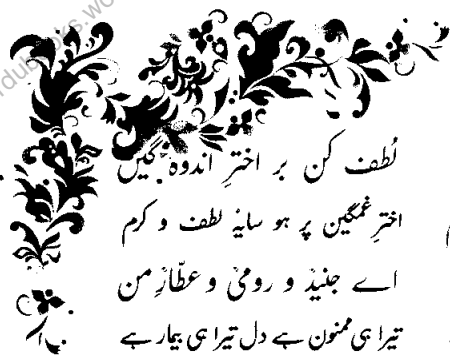 لُطف کن بر اخترِ اندوہ گیں
اخترِ غمگین پر ہو سایۂ لطف و کرم
اے جنیدؒ و رومیؒ و عطّارِ من
تیرا ہی ممنون ہے دل تیرا ہی بیمار ہے